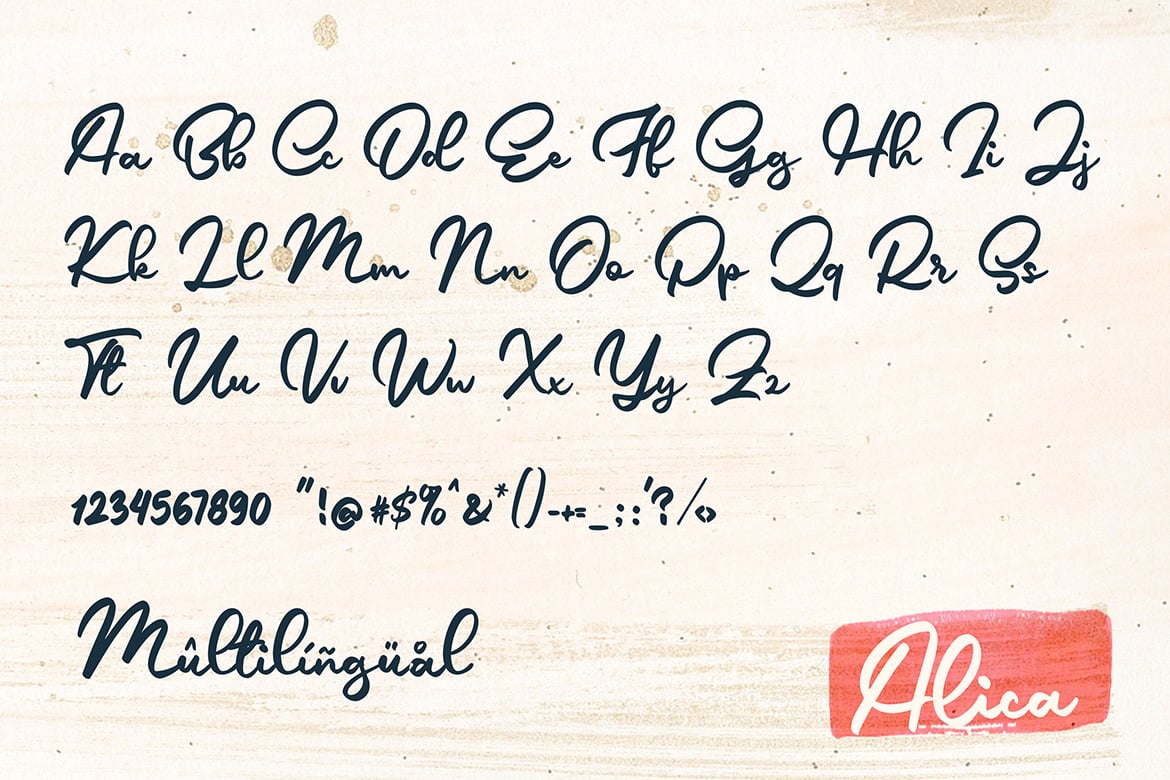 Aa Bb Cc Dd Ee Ff Gg Hh Ii Jj
Kk Ll Mm Nn Oo Pp Qq Rr Ss
Tt Uu Vv Ww Xx Yy Zz
1234567890 "!@#$%^&*()-+=_;:'?/<>
Mûltilíñgüål
Alica